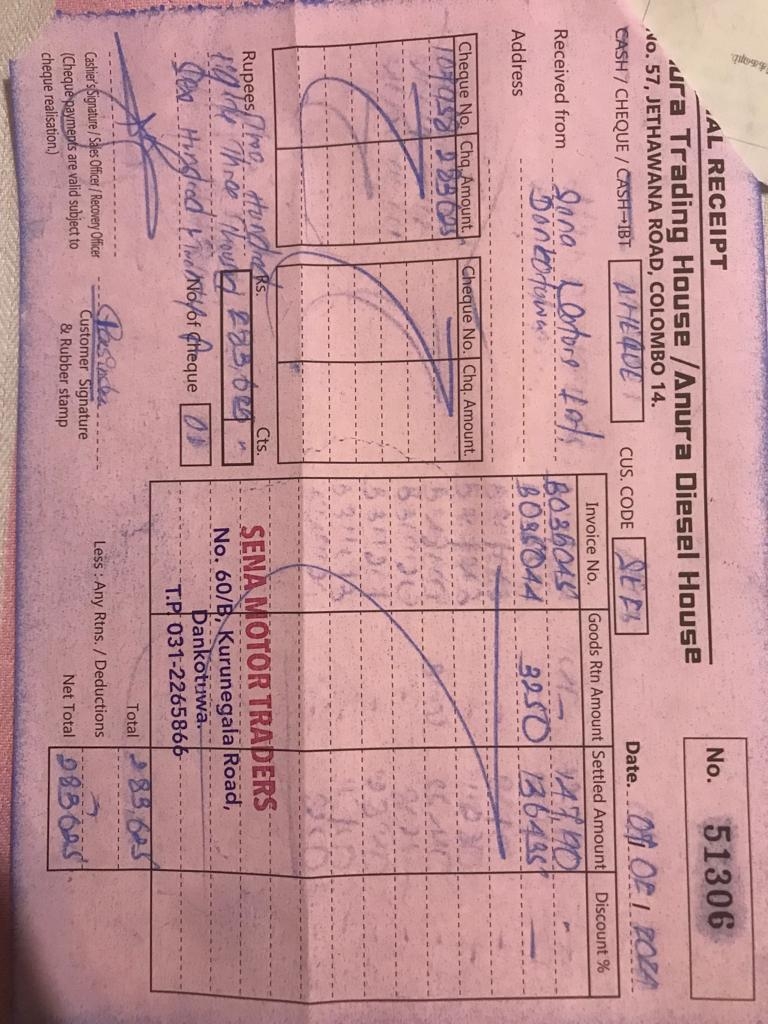 AL RECEIPT
ura Trading House / Anura Diesel House
No. 57, JETHAWANA ROAD, COLOMBO 14.
No. 51306
CASH / CHEQUE / CASH→IBT CHEQUE
CUS. CODE
Date. 2024
Received from Sena Motors
Dankotuwa
Address
Cheque No. Chq. Amount. Cheque No. Chq. Amount.
283625
Invoice No. Goods Rtn Amount Settled Amount Discount %
B036045 -
B035044 3250 136435 -
Rs. 283,625 Cts.
Rupees Two Hundred
Eighty Three Thousand
Six Hundred
No of Cheque 01
SENA MOTOR TRADERS
No. 60/B, Kurunegala Road,
Dankotuwa.
T.P. 031-2265866
Total 283,625
Less : Any Rtns. / Deductions
Net Total 283625
Cashier's Signature / Sales Officer / Recovery Officer
(Cheque payments are valid subject to
cheque realisation.)
Customer Signature
& Rubber stamp